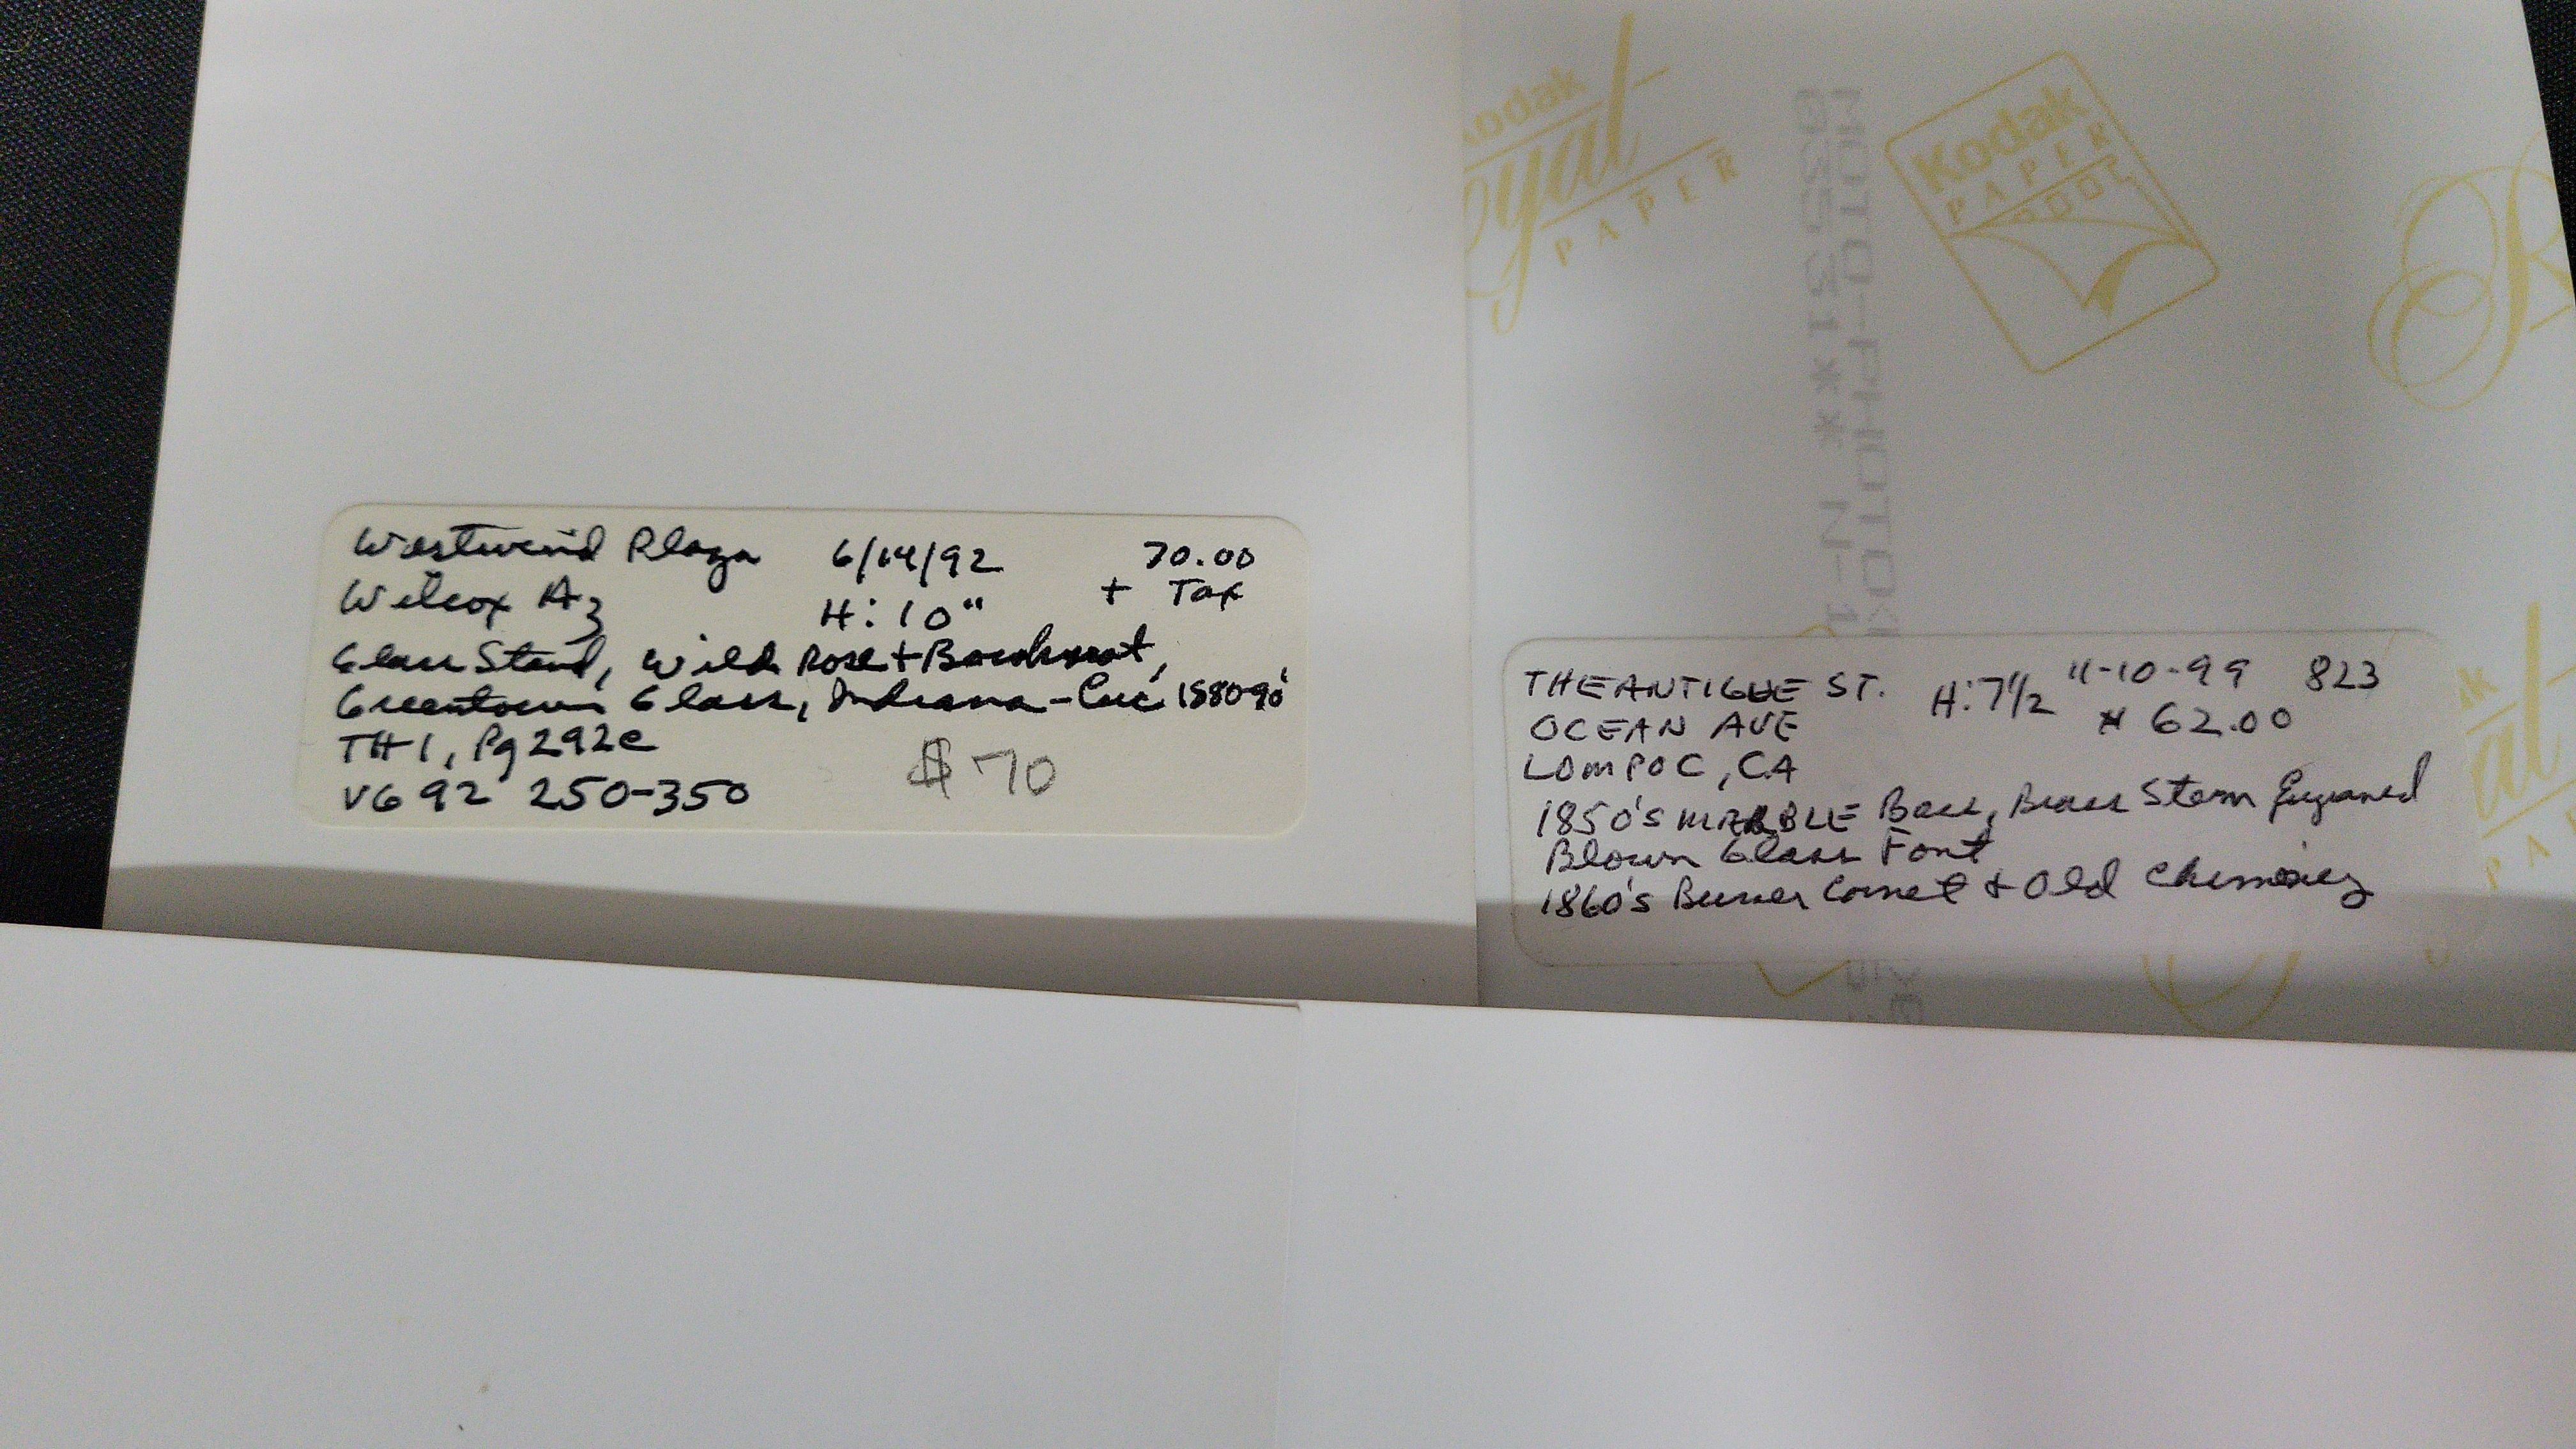 Westwind Plaza 6/14/92 70.00
Wilcox Az H: 10" + Tax
Glass Stand, Wild Rose + Bowknot,
Greentown Glass, Indiana - Circ 1880-90'
TH1, Pg 292e
VG 92 250-350 $70
Kodak
Royal
PAPER
Kodak
PAPER
MOTO-PHOTO
THE ANTIQUE ST. H: 7 1/2 11-10-99 823
OCEAN AVE 62.00
LOMPOC, CA
1850's MARBLE Base, Brass Stem Engraved
Blown Glass Font
1860's Burner Comet + Old Chimney